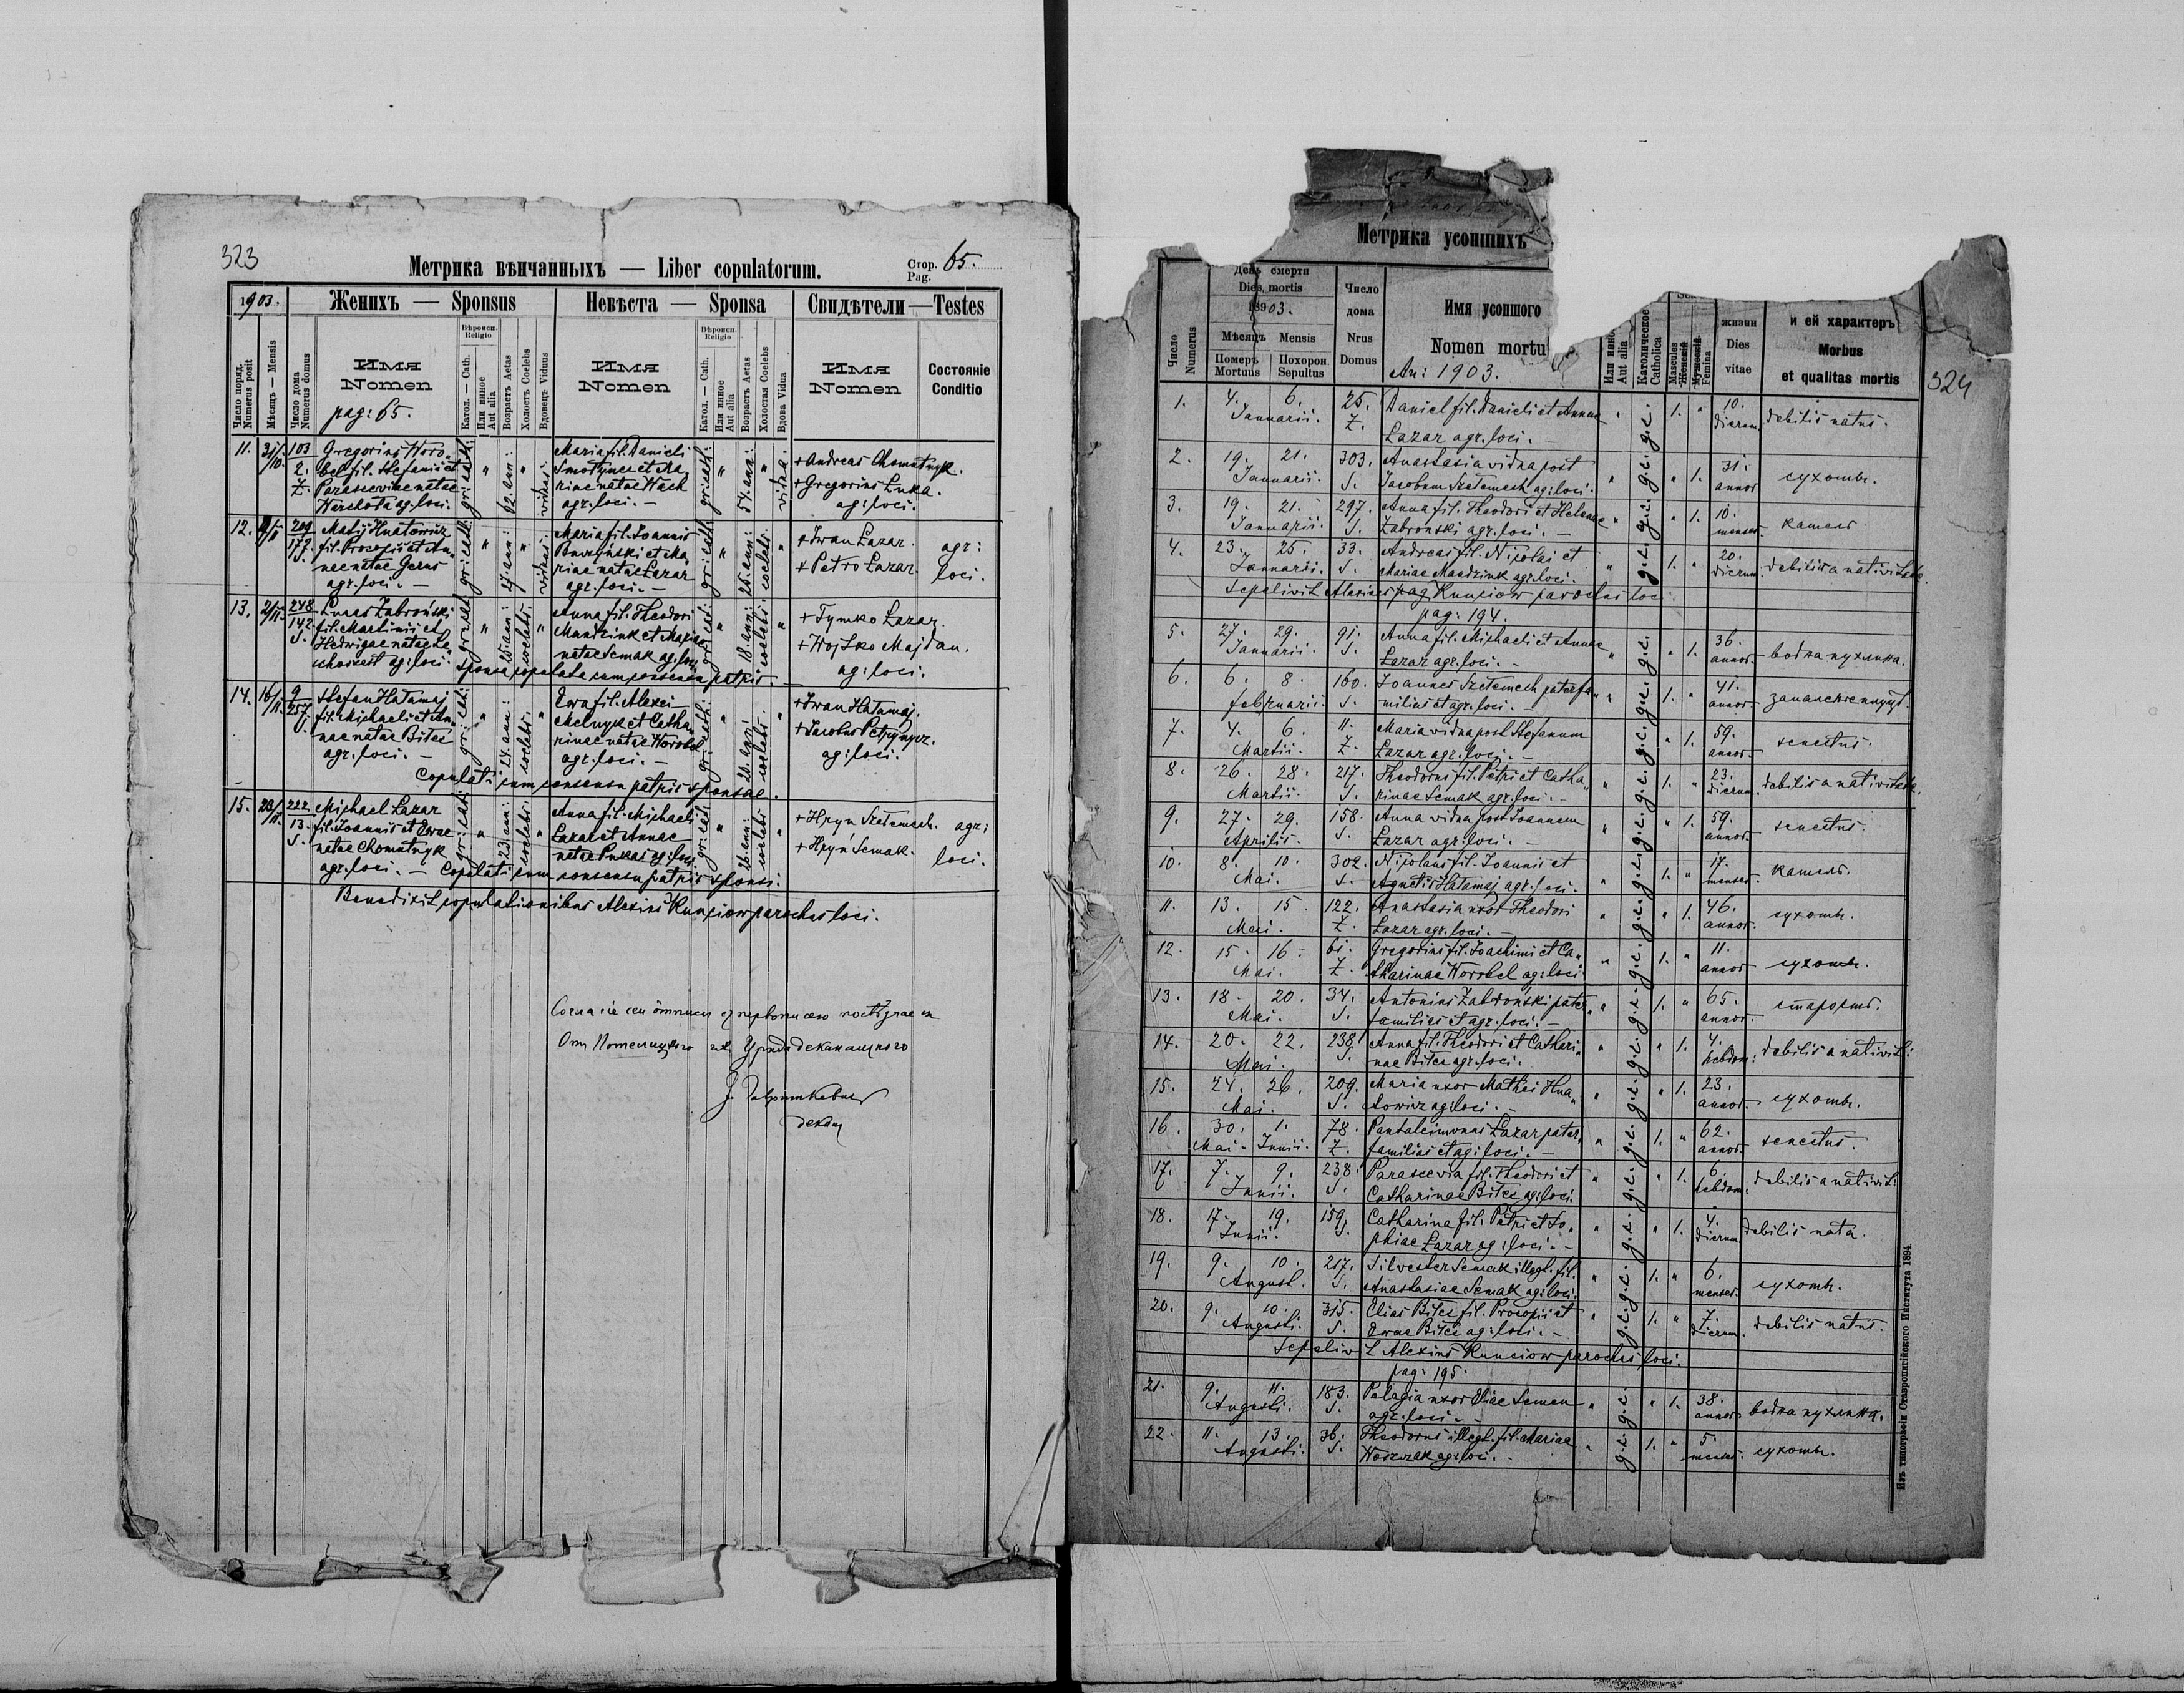 323
Метрика вѣнчанныхъ — Liber copulatorum.
Стор. Pag. 65.
1903.
Женихъ — Sponsus
Невѣста — Sponsa
Свидѣтели — Testes
Число поряд. Numerus posit
Мѣсяцъ — Mensis
Число дома Numerus domus
Имя Nomen
pag: 65.
Вѣроисп. Religio
Катол. — Cath.
Или иное Aut alia
Возрастъ Aetas
Холостъ Coelebs
Вдовецъ Vidus
Имя Nomen
Вѣроисп. Religio
Катол. — Cath.
Или иное Aut alia
Возрастъ Aetas
Холостая Coelebs
Вдова Vidua
Имя Nomen
Состояніе Conditio
11. 31/10. 103 2. Z.
Gregorius Woro„
bel fil. Stefani et
Parasceviae natae
agr. loci.
gr: cath: " 62. ann: " viduus.
Maria fil. Danieli
et Ma„
riae natae Wach
agr. loci. —
gr: cath: " 54. ann: " vidua.
+ Andreas Chomutnyk.
+ Gregorius Luka.
ag: loci.
12. 209 177. S.
Matij Hnatowicz
fil. Procopii et An„
nae natae Gerus
agr. loci. —
gr: cath: " 27. ann: " viduus.
Maria fil. Joannis
et Ma„
riae natae Lazar
agr. loci. —
gr: cath: " 25. ann: coelebs. "
+ Iwan Lazar.
+ Petro Lazar.
agr: loci.
13. 2/11. 248 142. S.
Lucas Zabroński
fil. Martinii et
Hedwigae natae
ag: loci.
gr: cat: " 25. ann: coelebs. "
Anna fil. Theodori
Mandziuk et Mariae
natae Semak ag: loci
gr: cat: " 18. ann: coelebs. "
+ Tymko Lazar.
+ Wojtko Majdan.
ag: loci.
Sponsa copulata cum consensu patris. —
14. 16/11. 9 257. S.
Stefan Hatamaj
fil. Michaeli et An„
nae natae Bilec
agr. loci. —
gr: cat: " 24. ann: coelebs. "
Ewa fil. Alexei
Melnyk et Catha„
rinae natae Worobel
agr. loci. —
gr: cath: " 20. ann: coelebs. "
+ Iwan Hatamaj.
+ Jacobus
ag: loci.
Copulati cum consensu patris sponsae.
15. 23/11. 222. 13. S.
Michael Lazar
fil. Joannis et Ewae
natae Chomutnyk
agr. loci. —
gr: cat: " 23. ann: coelebs. "
Anna fil. Michaeli
Lazar et Annae
natae Pukas ag: loci
gr: cat: " 26. ann: coelebs "
+ Hryń Szetemech.
+ Hryń Semak.
agr: loci.
Copulati cum consensu patris sponsi.
Benedixit copulationibus Alexius Kunciow parochus loci.
деканального
декан
324
Метрика усопшихъ
Число Numerus
День смерти
Dies mortis
1903.
Мѣсяцъ Mensis
Померъ Mortuus
Похорон. Sepultus
Число дома Nrus Domus
Имя усопшого
Nomen mortu
An: 1903.
Или ино Aut alia
Католическое Catholica
Mascules
Женскій
Мужескій
Femina
жизни Dies vitae
и ей характеръ
Morbus
et qualitas mortis
1. 4. 6. Januarii. 25. Z. Daniel fil. Danieli et Annae Lazar agr. loci. — " g.c. 1. " 10. dierum debilis natus.
2. 19. 21. Januarii. 303. S. Anastasia vidua post Jacobum Szetemech ag: loci. " g.c. " 1. 31. annos сухоты.
3. 19. 21. Januarii. 297. S. Anna fil. Theodori et Helenae Zabronski agr. loci. — " g.c. " 1. 10. menses. кашель
4. 23. 25. Januarii. 33. S. Andreas fil. Nicolai et Mariae Mandziuk agr. loci. " g.c. 1. " 20. dierum debilis a nativitate.
Sepelivit Alexius Kunciow parochus loci.
pag: 194.
5. 27. 29. Januarii. 91. S. Anna fil. Michaeli et Annae Lazar agr. loci. — " g.c. " 1. 36. annos. водна пухлина.
6. 6. 8. februarii. 160. S. Joannes Szetemech paterfa„ milias et agr. loci. " g.c. 1. " 41. annos. запаленье
7. 4. 6. Martii. 11. Z. Maria vidua post Stefanum Lazar agr. loci. — g.c. " 1. 59. annos. senectus.
8. 26. 28. Martii. 217. S. Theodorus fil. Petri et Catha„ rinae Semak agr. loci. — " g.c. 1. " 23. dierum. debilis a nativitate.
9. 27. 29. Aprilis. 158. S. Anna vidua post Joannem Lazar agr. loci. — " g.c. " 1. 59. annos. senectus.
10. 8. 10. Mai. 302. S. Nicolaus fil. Joannis et Agnetis Hatamaj agr. loci. " g.c. 1. " 17. menses. кашель.
11. 13. 15. Mai. 122. Z. Anastasia uxor Theodori Lazar agr. loci. — " g.c. " 1. 46. annos. сухоты.
12. 15. 16. Mai. 61. Z. Gregorius fil. Joachimi et Ca„ tharinae Worobel ag: loci. " g.c. 1. " 11. annos сухоты.
13. 18. 20. Mai. 34. S. Antonius Zabroński pater„ familias et agr. loci. — " g.c. 1. " 65. annos. старость.
14. 20. 22. Mai. 238. S. Anna fil. Theodori et Cathari„ nae Bilec agr. loci. " g.c. " 1. 4. hebdom: debilis a nativit:
15. 24. 26. Mai. 209. S. Maria uxor Mathei Hna„ towicz ag: loci. — " g.c. " 1. 23. annos. сухоты.
16. 30. 1. Mai - Junii. 78. Z. Pantaleimonus Lazar pater„ familias et ag: loci. — " g.c. 1. " 62. annos. senectus.
17. 7. 9. Junii. 238. S. Parascevia fil. Theodori et Catharinae Bilec ag: loci. " g.c. " 1. 6. hebdom: debilis a nativit:
18. 17. 19. Junii. 159. S. Catharina fil. Petri et So„ phiae Lazar ag: loci. — " g.c. " 1. 4. dierum debilis nata.
19. 9. 10. August. 217. S. Silvester Semak illegt. fil. Anastasiae Semak ag: loci. " g.c. 1. " 6. menses. сухоты.
20. 9. 10. Augusti. 315. S. Elias Bilec fil. Procopii et Ewae Bilec ag: loci. — " g.c. 1. " 7. dierum. debilis natus.
Sepelivit Alexius Kunciow parochus loci.
pag: 195.
21. 9. 11. Augusti. 183. S. Pelagia uxor Eliae Semen agr. loci. — " g.c. " 1. 38. annos водна пухлина.
22. 11. 13. Augusti. 36. S. Theodorus illegt. fil. Mariae ag: loci. — " g.c. 1. " 5. menses. сухоты.
Изъ типографіи Ставропигійского Института 1894